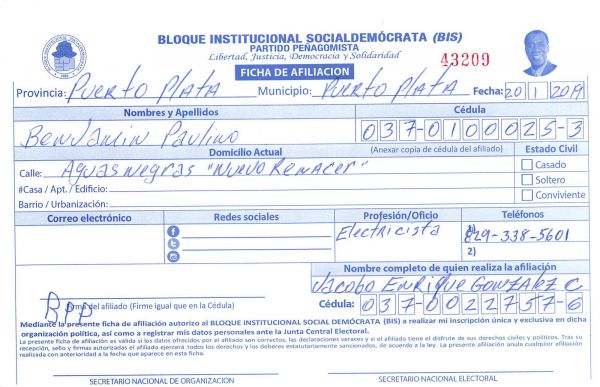 BLOQUE INSTITUCIONAL SOCIALDEMÓCRATA (BIS)
PARTIDO PEÑAGOMISTA
Libertad, Justicia, Democracia y Solidaridad
43209
FICHA DE AFILIACION
Provincia: Puerto Plata Municipio: Puerto Plata Fecha: 20 1 2019
Nombres y Apellidos Cédula
Benjamin Paulino 037-0100025-3
Domicilio Actual (Anexar copia de cédula del afiliado) Estado Civil
Calle: Aguas negras "Nuevo Renacer" Casado
#Casa / Apt. / Edificio: Soltero
Barrio / Urbanización: Conviviente
Correo electrónico Redes sociales Profesión/Oficio Teléfonos
Electricista 1) 829-338-5601
2)
Nombre completo de quien realiza la afiliación
Jacobo Enrique Gonzalez C
BPP
Firma del afiliado (Firme igual que en la Cédula) Cédula: 037-0022757-6
Mediante la presente ficha de afiliación autorizo al BLOQUE INSTITUCIONAL SOCIAL DEMÓCRATA (BIS) a realizar mi inscripción única y exclusiva en dicha
organización política, así como a registrar mis datos personales ante la Junta Central Electoral.
La presente ficha de afiliación es válida si los datos ofrecidos por el afiliado son correctos, las declaraciones veraces y si el afiliado tiene el disfrute de sus derechos civiles y políticos. Tras su
recepción, sello y firmas autorizadas el afiliado ejercerá todos los derechos y los deberes estatutariamente sancionados, de acuerdo a la ley. La presente afiliación anula cualquier afiliación
realizada con anterioridad a la fecha que aparece en esta ficha.
SECRETARIO NACIONAL DE ORGANIZACIÓN SECRETARIO NACIONAL ELECTORAL